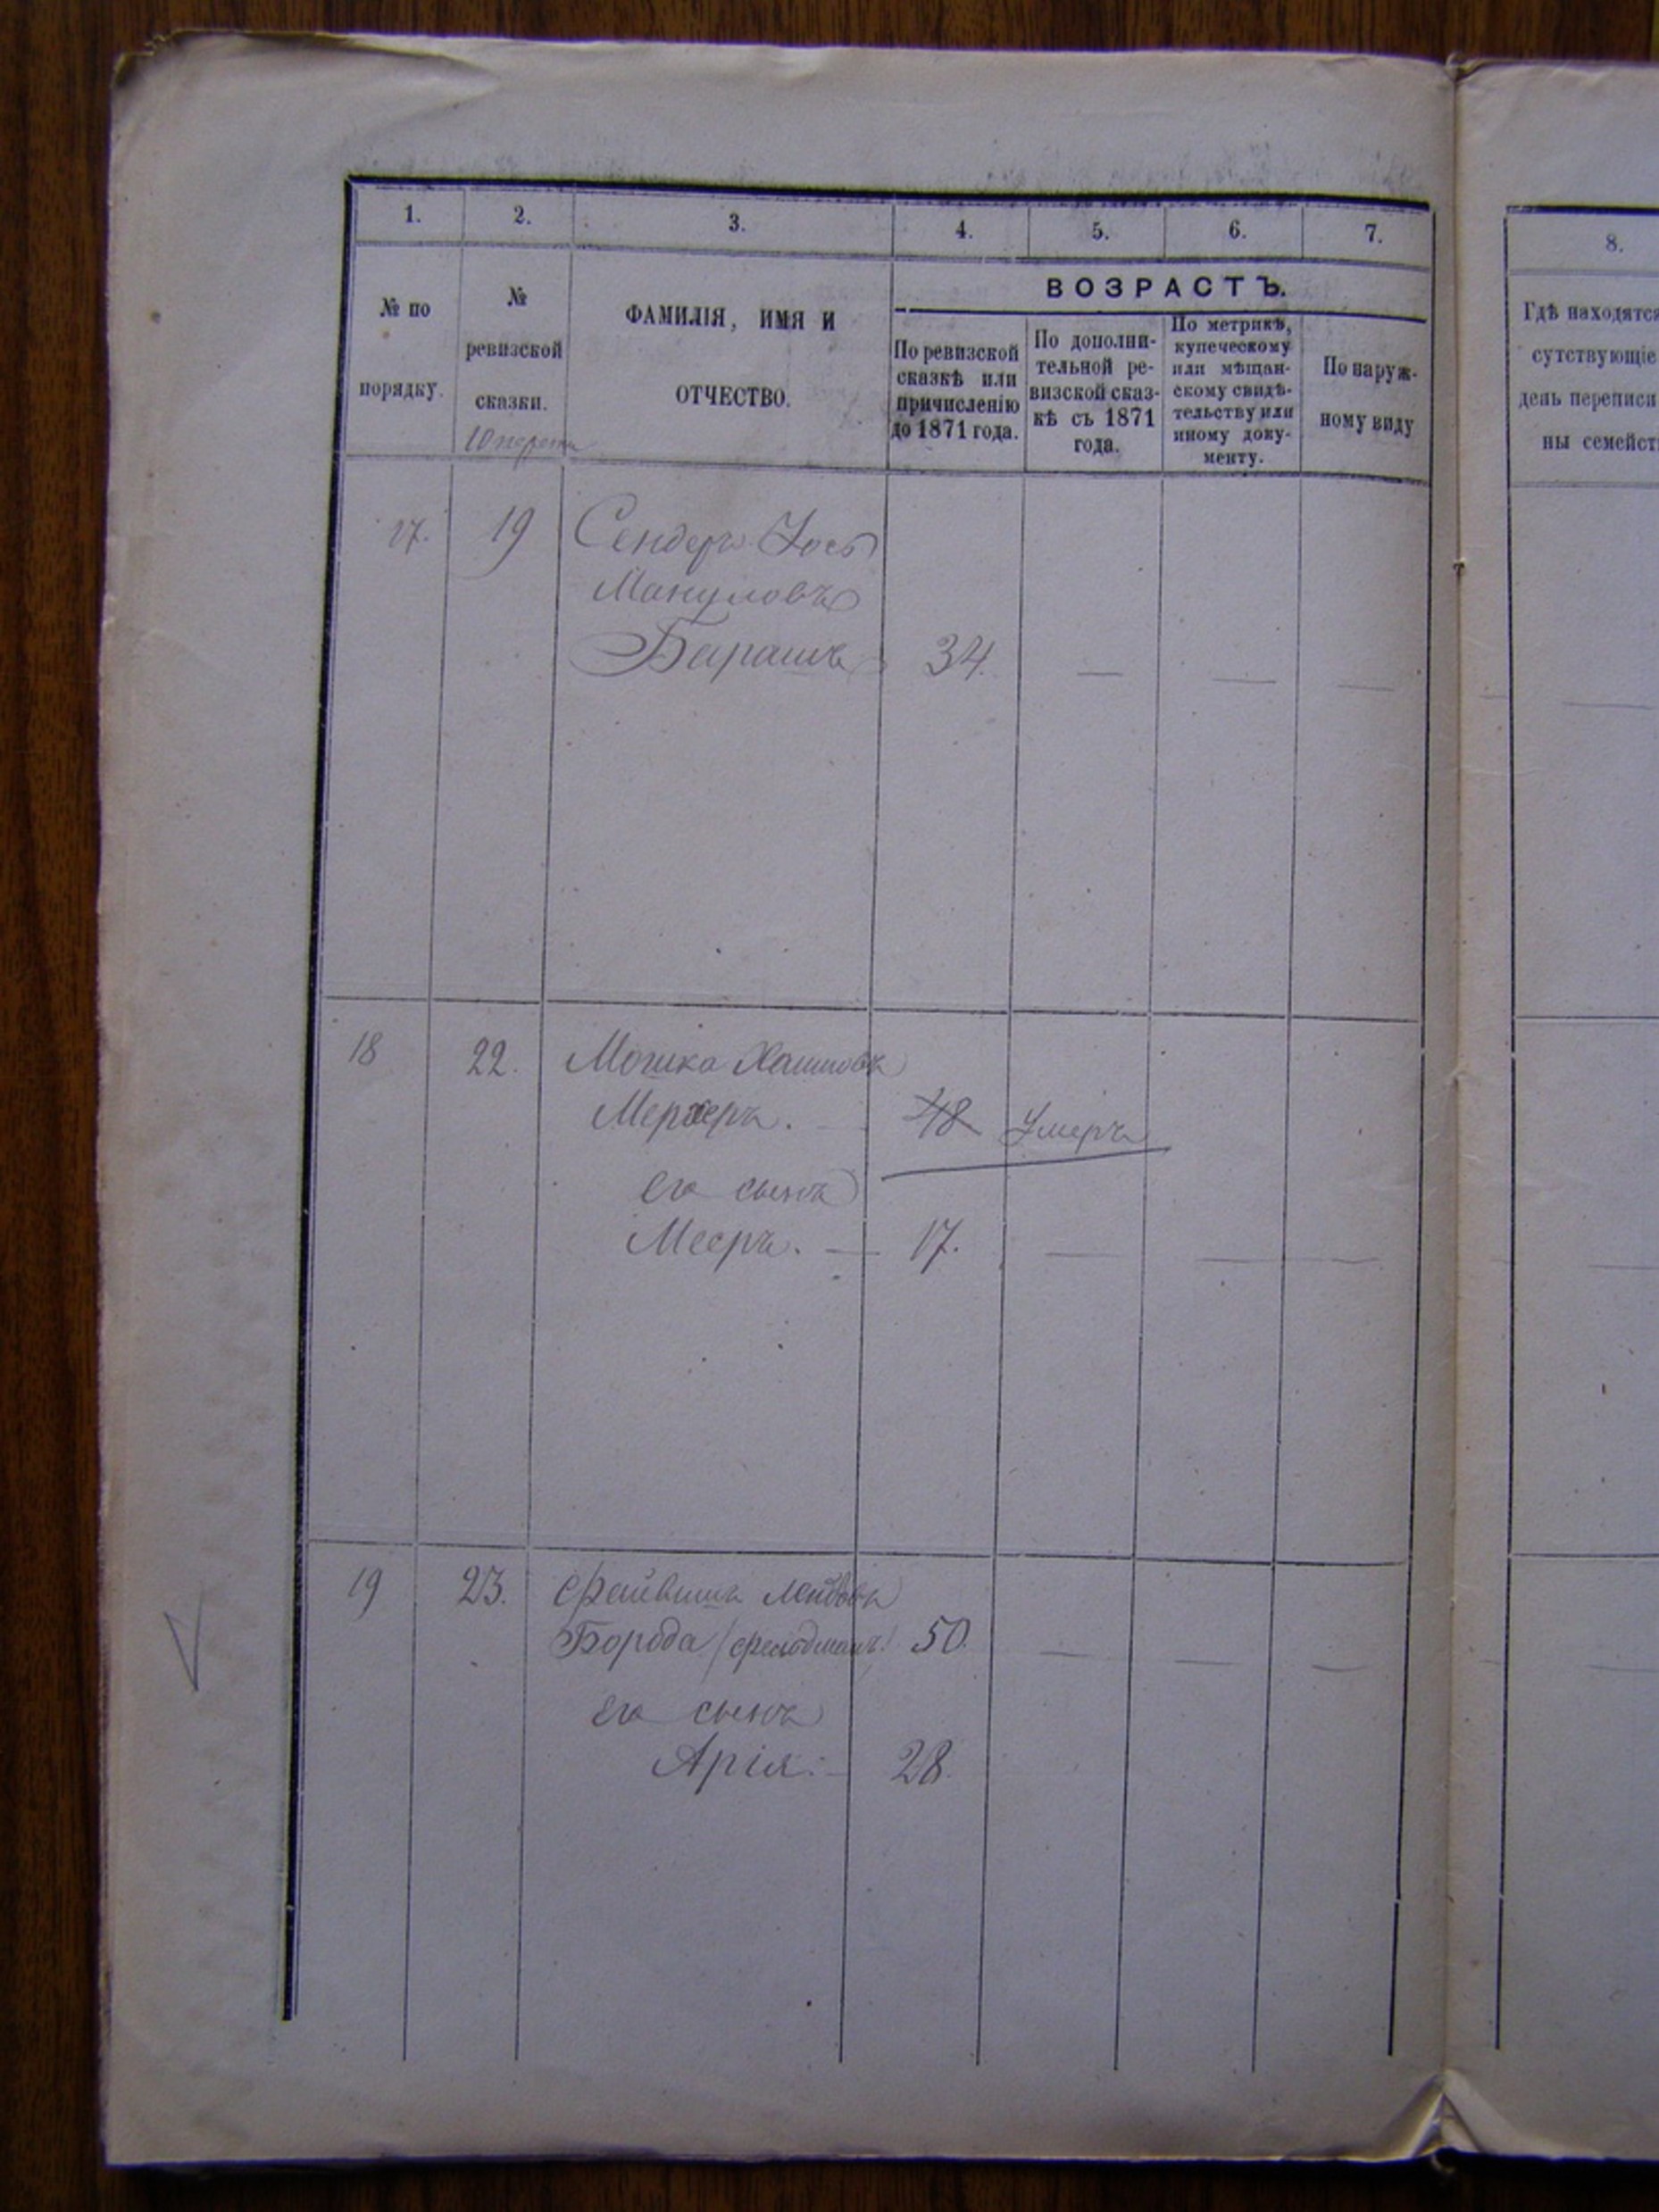 1. 2. 3. 4. 5. 6. 7. 8.
№ по порядку.
№ ревизской сказки.
ФАМИЛІЯ, ИМЯ И ОТЧЕСТВО.
ВОЗРАСТЪ.
По ревизской
сказкѣ или
причисленію
до 1871 года.
По дополни-
тельной ре-
визской сказ-
кѣ съ 1871
года.
По метрикѣ,
купеческому
или мѣщан-
скому свидѣ-
тельству или
иному доку-
менту.
По наруж-
ному виду
Гдѣ находятся
сутствующіе
день переписи
ны семейст
17. 19 Сендеръ Іось
Мануловъ
Барашъ 34. — — —
18 22. Мошка Хаимовъ
Мерхеръ. — 48 Умеръ
его сынъ
Мееръ. — 17. — — —
19 23. Файвишъ Лейбовъ
Борода /Фельдманъ/ 50. — — —
его сынъ
Арія. — 28.